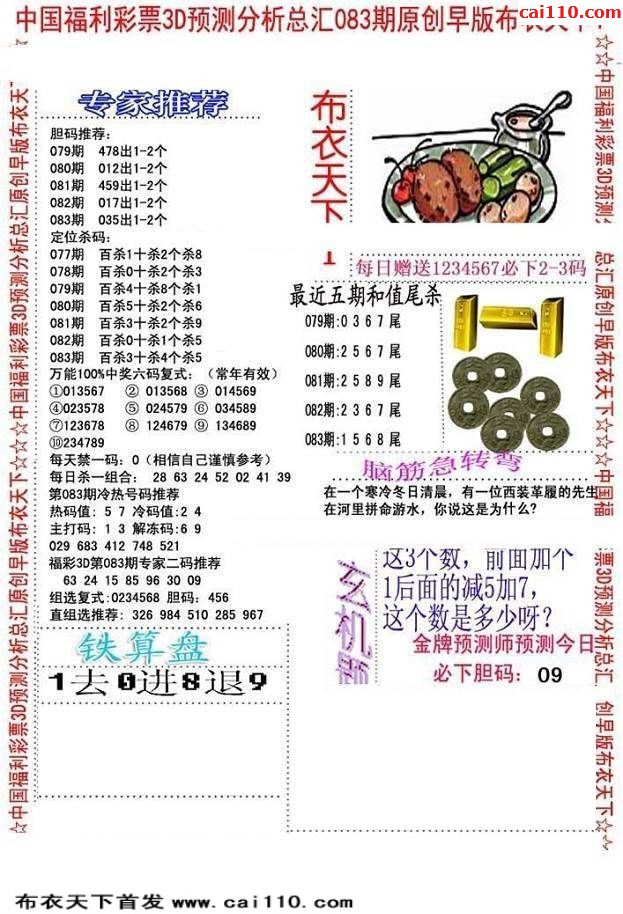 cai110.com
中国福利彩票3D预测分析总汇083期原创早版布衣天下
专家推荐
胆码推荐:
079期 478出1-2个
080期 012出1-2个
081期 459出1-2个
082期 017出1-2个
083期 035出1-2个
定位杀码:
077期 百杀1十杀2个杀8
078期 百杀0十杀2个杀3
079期 百杀4十杀8个杀1
080期 百杀5十杀2个杀6
081期 百杀3十杀2个杀9
082期 百杀0十杀1个杀5
083期 百杀3十杀4个杀5
万能100%中奖六码复式:(常年有效)
①013567 ② 013568 ③ 014569
④023578 ⑤ 024579 ⑥ 034589
⑦123678 ⑧ 124679 ⑨ 134689
⑩234789
每天禁一码:0(相信自己谨慎参考)
每日杀一组合: 28 63 24 52 02 41 39
第083期冷热号码推荐
热码值: 5 7 冷码值:2 4
主打码: 1 3 解冻码:6 9
029 683 412 748 521
福彩3D第083期专家二码推荐
63 24 15 85 96 30 09
组选复式:0234568 胆码: 456
直组选推荐: 326 984 510 285 967
铁算盘
1去0进8退9
布衣天下
1
每日赠送1234567必下2-3码
最近五期和值尾杀
079期:0 3 6 7 尾
080期:2 5 6 7 尾
081期:2 5 8 9 尾
082期:2 3 6 7 尾
083期:1 5 6 8 尾
脑筋急转弯
在一个寒冷冬日清晨，有一位西装革履的先生
在河里拼命游水，你说这是为什么?
玄机
这3个数，前面加个
1后面的减5加7,
这个数是多少呀?
金牌预测师预测今日
必下胆码: 09
☆中国福利彩票3D预测分析总汇原创早版布衣天下☆☆☆中国福利彩票3D预测分析总汇原创早版布衣天
☆☆中国福利彩票3D预测分
总汇原创早版布衣天下☆☆☆中国福
票3D预测分析总汇
创早版布衣天下☆☆
布衣天下首发 www.cai110.com